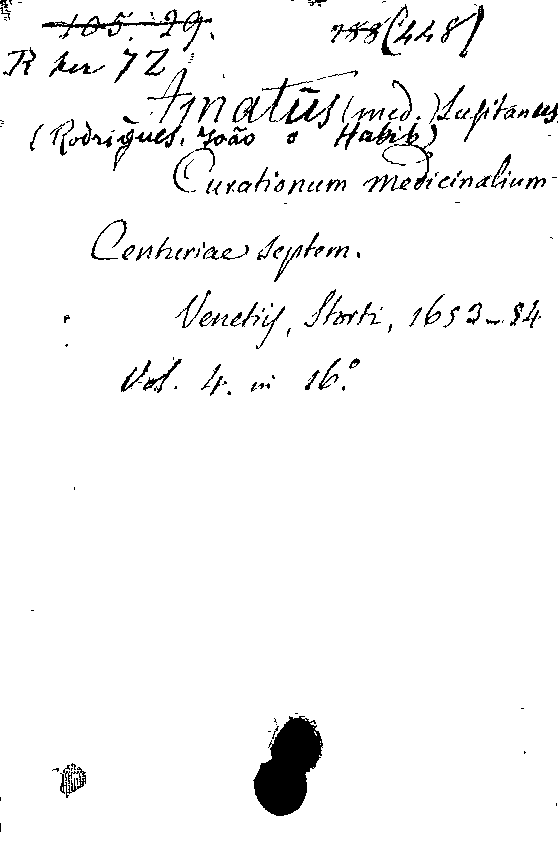 105. 29. 788 (448)
R ker 72
Amatus (med.) Lusitanus
(Rodrigues, João o Habib)
Curationum medicinalium
Centuriae septem.
Venetijs, Storti, 1653-54
Vol. 4. in 16°.